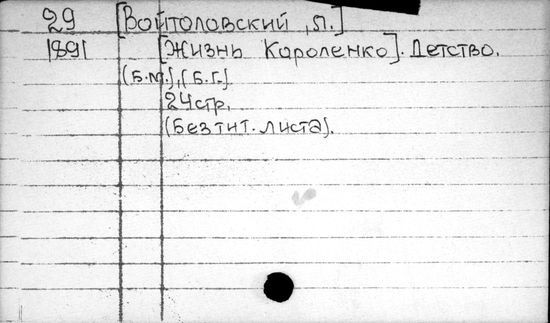 29 [Войтоловский, Л.]
1891 [Жизнь Короленко]. Детство.
(Б.м.), (Б.г.)
24стр.
(Без тит. листа).